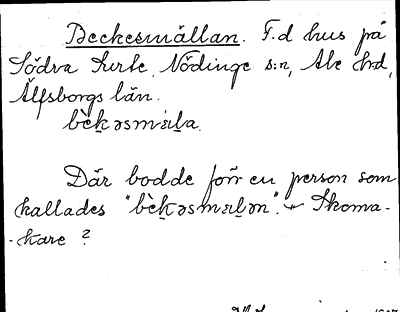 Beckesmällan. F.d hus på
Södra Surte, Nödinge s:n, Ale hd,
Älfsborgs län.
bèḵəsmɛḻa.
Där bodde förr en person som
kallades "bèḵəsmɛḻən". Skoma-
-kare?